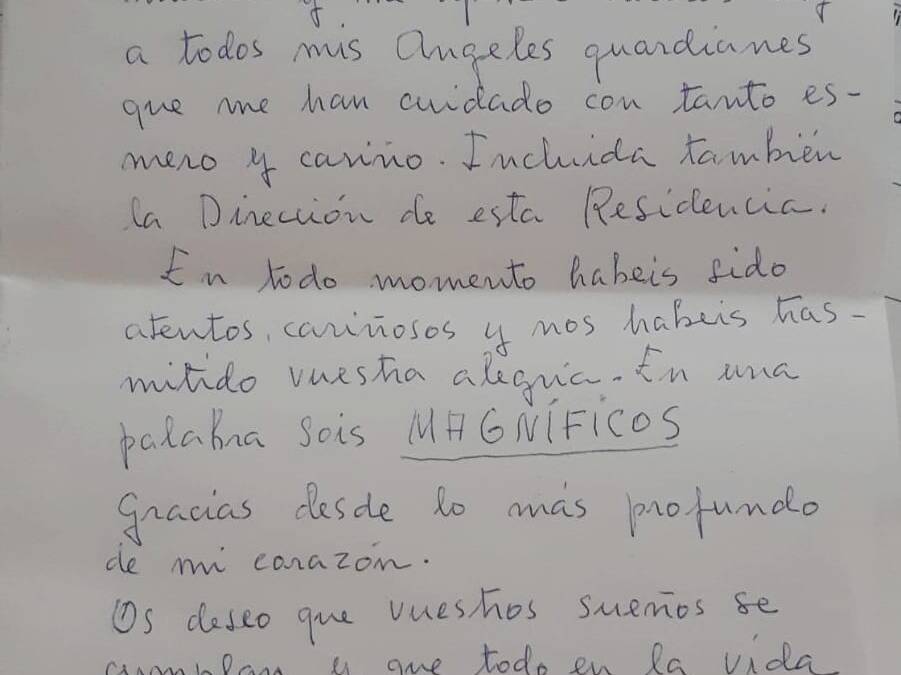 a todos mis Angeles guardianes
que me han cuidado con tanto es-
mero y cariño. Incluida también
la Dirección de esta Residencia.
En todo momento habeis sido
atentos, cariñosos y nos habeis tras-
mitido vuestra alegria. En una
palabra sois MAGNÍFICOS
Gracias desde lo más profundo
de mi corazón.
Os deseo que vuestros sueños se
cumplan y que todo en la vida